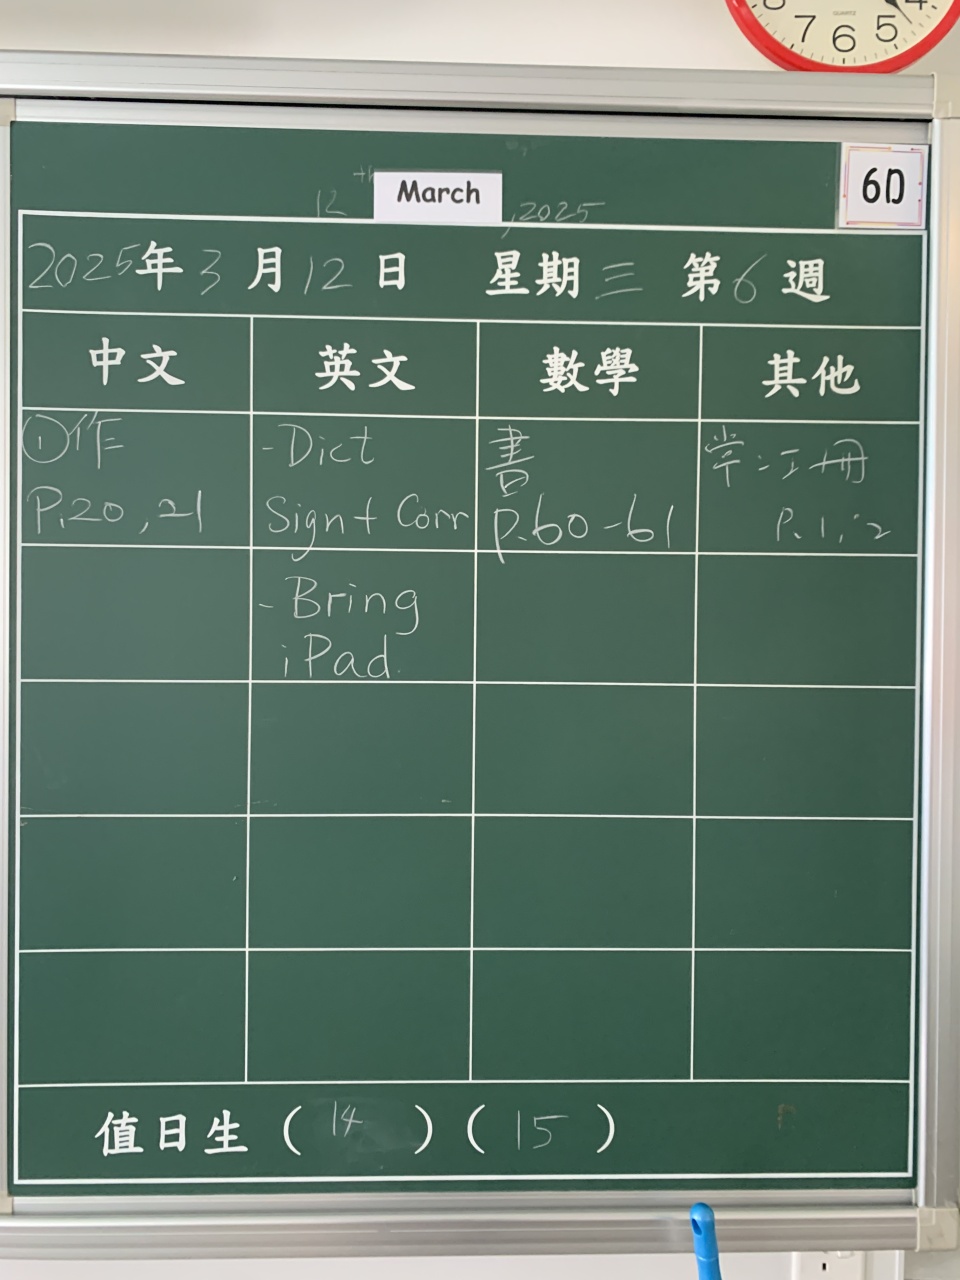 8 7 6 5 4
QUARTZ
12th March, 2025
6D
2025年3月12日 星期三 第6週
中文 英文 數學 其他
①作
P.20, 21
-Dict
Sign + Corr
書
p.60-61
P.1, 2
- Bring
iPad.
值日生 ( 14 ) ( 15 )